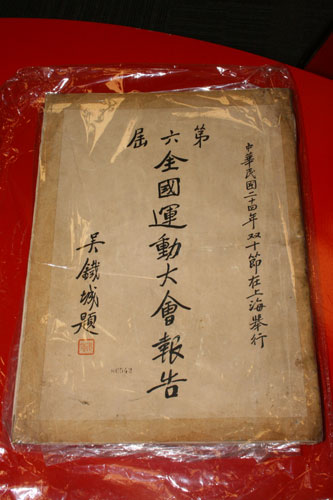 中華民國二十四年双十節在上海舉行
第六屆
全國運動大會報告
吳鐵城題